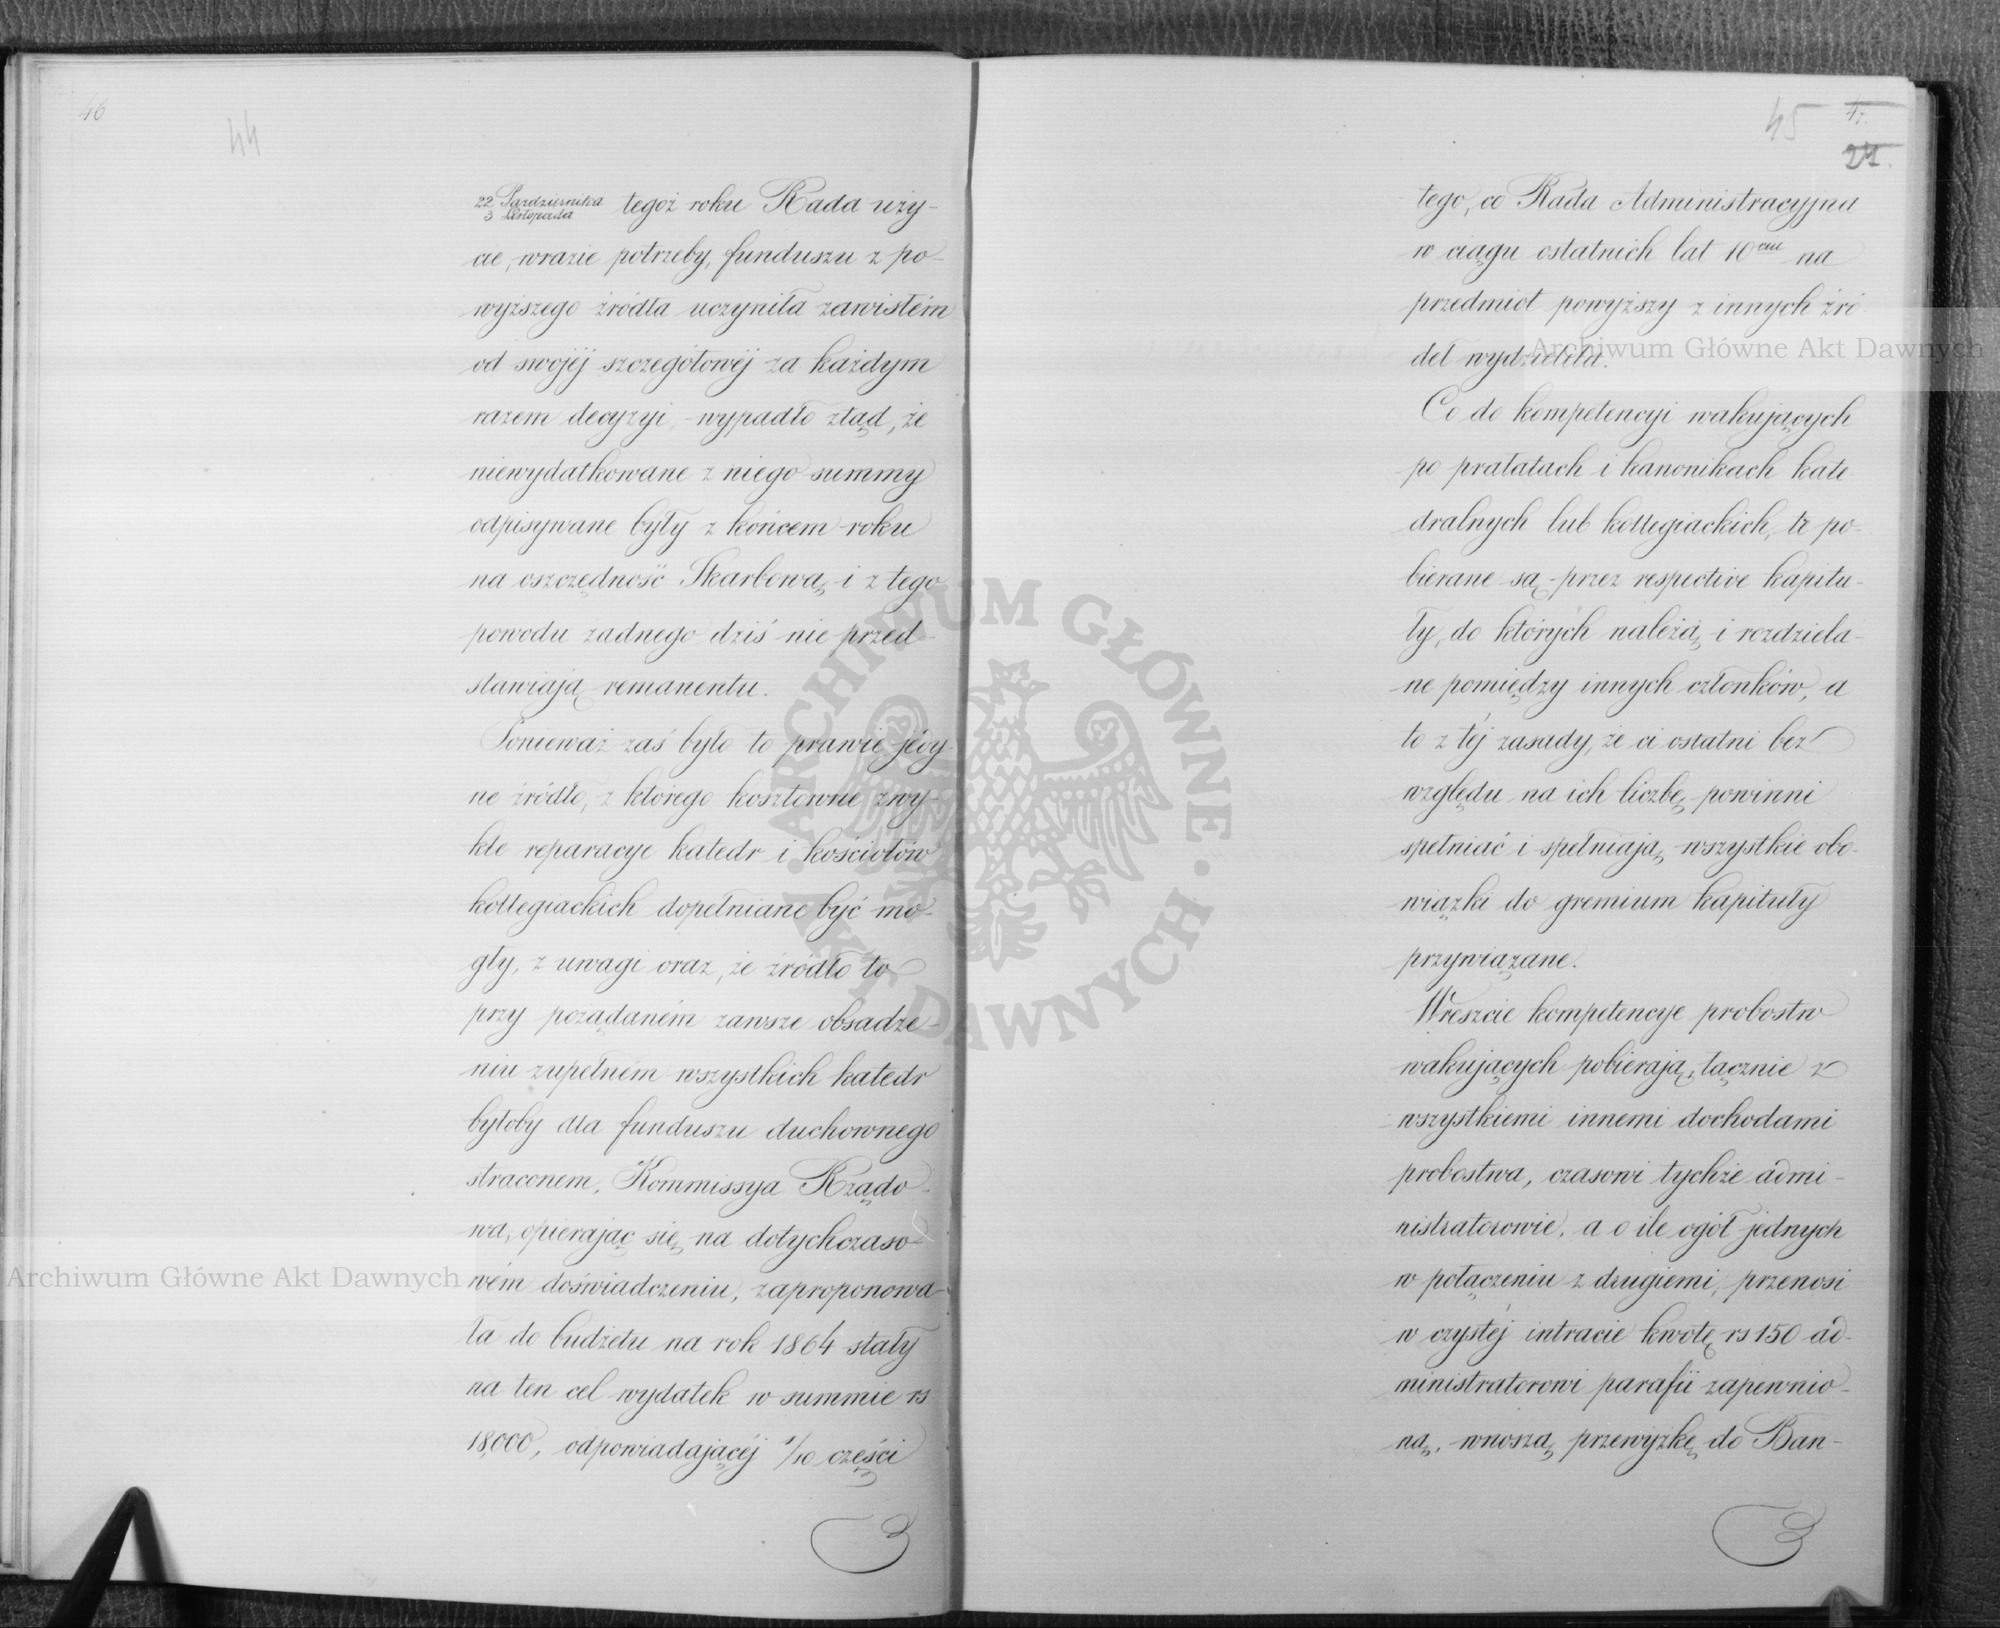 46
44
22 Października
3 Listopada tegoż roku Rada uży-
cie, wrazie potrzeby, funduszu z po-
wyższego źródła uczyniła zawisłém
od swojéj szczegółowéj za każdym
razem decyzyi, wypadło ztąd, że
niewydatkowane z niego summy
odpisywane były z końcem roku
na oszczędność Skarbową, i z tego
powodu żadnego dziś nie przed-
stawiają remanentu.
Ponieważ zaś było to prawie jedy-
ne źródło, z którego kosztowne zwy-
kle reparacye katedr i kościołów
kollegiackich dopełniane być mo-
gły, z uwagi oraz, że źródło to
przy pożądaném zawsze obsadze-
niu zupełném wszystkich katedr
byłoby dla funduszu duchownego
straconem, Kommissya Rządo-
wa, opierając się na dotychczaso-
wém doświadczeniu, zaproponowa-
ła do budżetu na rok 1864 stały
na ten cel wydatek w summie rs
18,000, odpowiadającéj 1/10 części
45
24.
tego, co Rada Administracyjna
w ciągu ostatnich lat 10ciu na
przedmiot powyższy z innych źró-
deł wydzieliła.
Co do kompetencyi wakujących
po prałatach i kanonikach kate-
dralnych lub kollegiackich, te po-
bierane są przez respective kapitu-
ły, do których należą, i rozdziela-
ne pomiędzy innych członków, a
to z téj zasady, że ci ostatni bez
względu na ich liczbę, powinni
spełniać i spełniają, wszystkie obo-
wiązki do gremium kapituły
przywiązane.
Wreszcie kompetencye probostw
wakujących pobierają, łącznie z
wszystkiemi innemi dochodami
probostwa, czasowi tychże admi-
nistratorowie, a o ile ogół jednych
w połączeniu z drugiemi, przenosi
w czystéj intracie kwotę rs 150 ad-
ministratorowi parafii zapewnio-
ną, wnoszą przewyżkę do Ban-
Archiwum Główne Akt Dawnych
Archiwum Główne Akt Dawnych
ARCHIWUM GŁÓWNE · AKT DAWNYCH ·